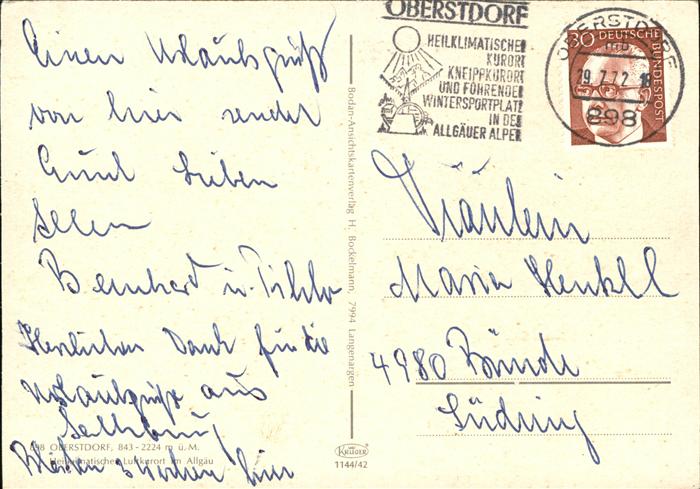 Einen Urlaubsgruß
von hier sendet
Euch Lieben
Allen
Bernhard u.
Herzlichen Dank für die
Urlaubsgrüße aus
Salzburg
898 OBERSTDORF, 843 - 2224 m ü. M.
Heilklimatischer Luftkurort im Allgäu
hier
Bodan-Ansichtskartenverlag H. Bockelmann, 7994 Langenargen
KRÜGER
1144/42
OBERSTDORF
HEILKLIMATISCHER
KURORT
KNEIPPKURORT
UND FÜHRENDER
WINTERSPORTPLATZ
IN DEN
ALLGÄUER ALPEN
OBERSTDORF
29.7.72
898
30 DEUTSCHE
BUNDESPOST
Fräulein
Maria Henkel
4980 Bünde
Südring